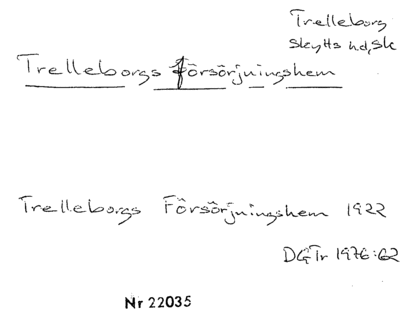 Trelleborg
Skytts hd, Sk
Trelleborgs Försörjningshem
Trelleborgs Försörjningshem 1922
DGTr 1976:62
Nr 22035